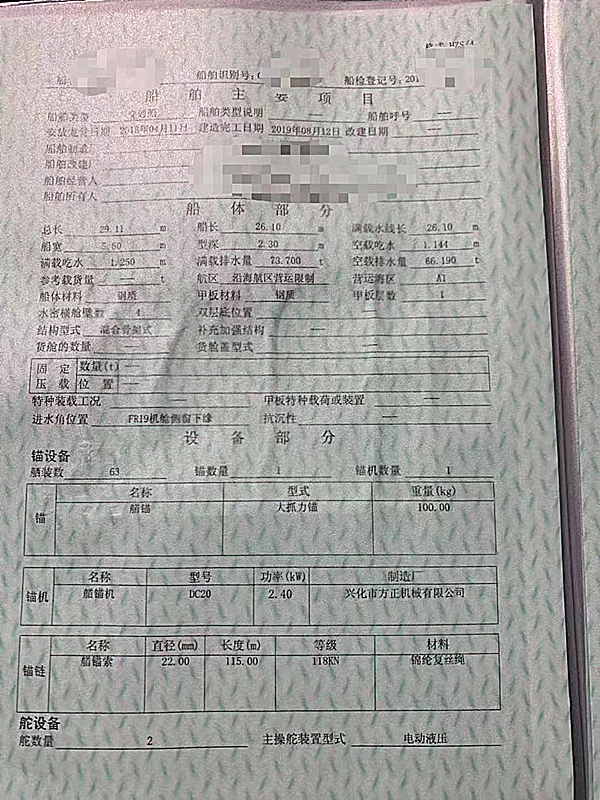 船舶识别号: 船检登记号:201
船舶主要项目
船舶类型 交通船 船舶类型说明 — 船舶呼号 —
安放龙骨日期 2018年04月11日 建造完工日期 2019年08月12日 改建日期 —
船舶制造厂
船舶改建厂
船舶经营人
船舶所有人
船体部分
总长 29.11 m 船长 26.10 m 满载水线长 26.10 m
船宽 5.60 m 型深 2.30 m 空载吃水 1.144 m
满载吃水 1.250 m 满载排水量 73.700 t 空载排水量 66.190 t
参考载货量 — t 航区 沿海航区营运限制 营运海区 A1
船体材料 钢质 甲板材料 钢质 甲板层数 1
水密横舱壁数 4 双层底位置 —
结构型式 混合骨架式 补充加强结构 —
货舱的数量 — 货舱盖型式 —
固定 数量(t) —
压载 位置 —
特种装载工况 — 甲板特种载荷或装置 —
进水角位置 FR19机舱侧窗下缘 抗沉性 —
设备部分
锚设备
舾装数 63 锚数量 1 锚机数量 1
名称 型式 重量(kg)
锚 艏锚 大抓力锚 100.00
名称 型号 功率(kW) 制造厂
锚机 艏锚机 DC20 2.40 兴化市方正机械有限公司
名称 直径(mm) 长度(m) 等级 材料
锚链 艏锚索 22.00 115.00 118KN 锦纶复丝绳
舵设备
舵数量 2 主操舵装置型式 电动液压